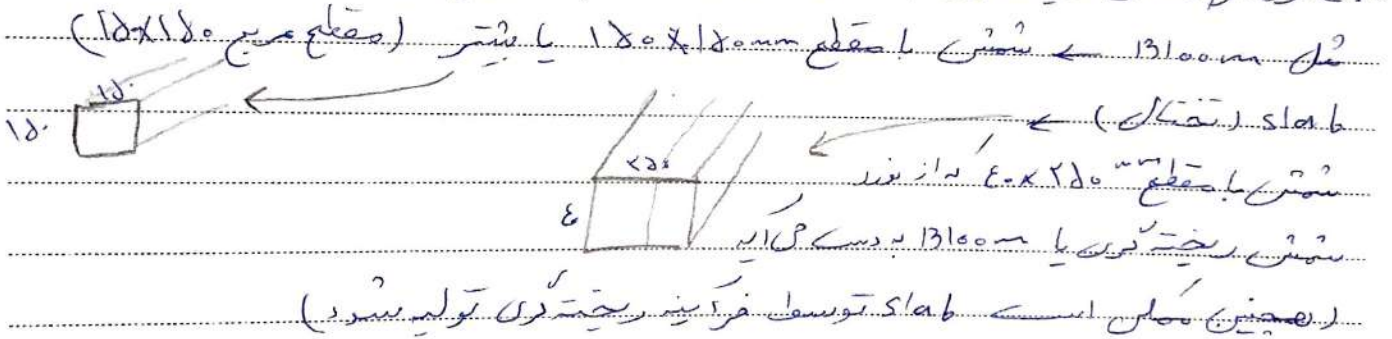 مثل Bloom ← شمش با مقطع ۱۵۰×۱۵۰mm یا بیشتر (مقطع مربع ۱۵۰×۱۵۰)
۱۵۰
۱۵۰
slab (تختال) ←
شمش با مقطع ۴۰×۲۵۰mm که از نورد
۲۵۰
۴۰
شمش ریخته گری یا Bloom به دست می آید
(همچنین ممکن است slab توسط فرآیند ریخته گری تولید شود)